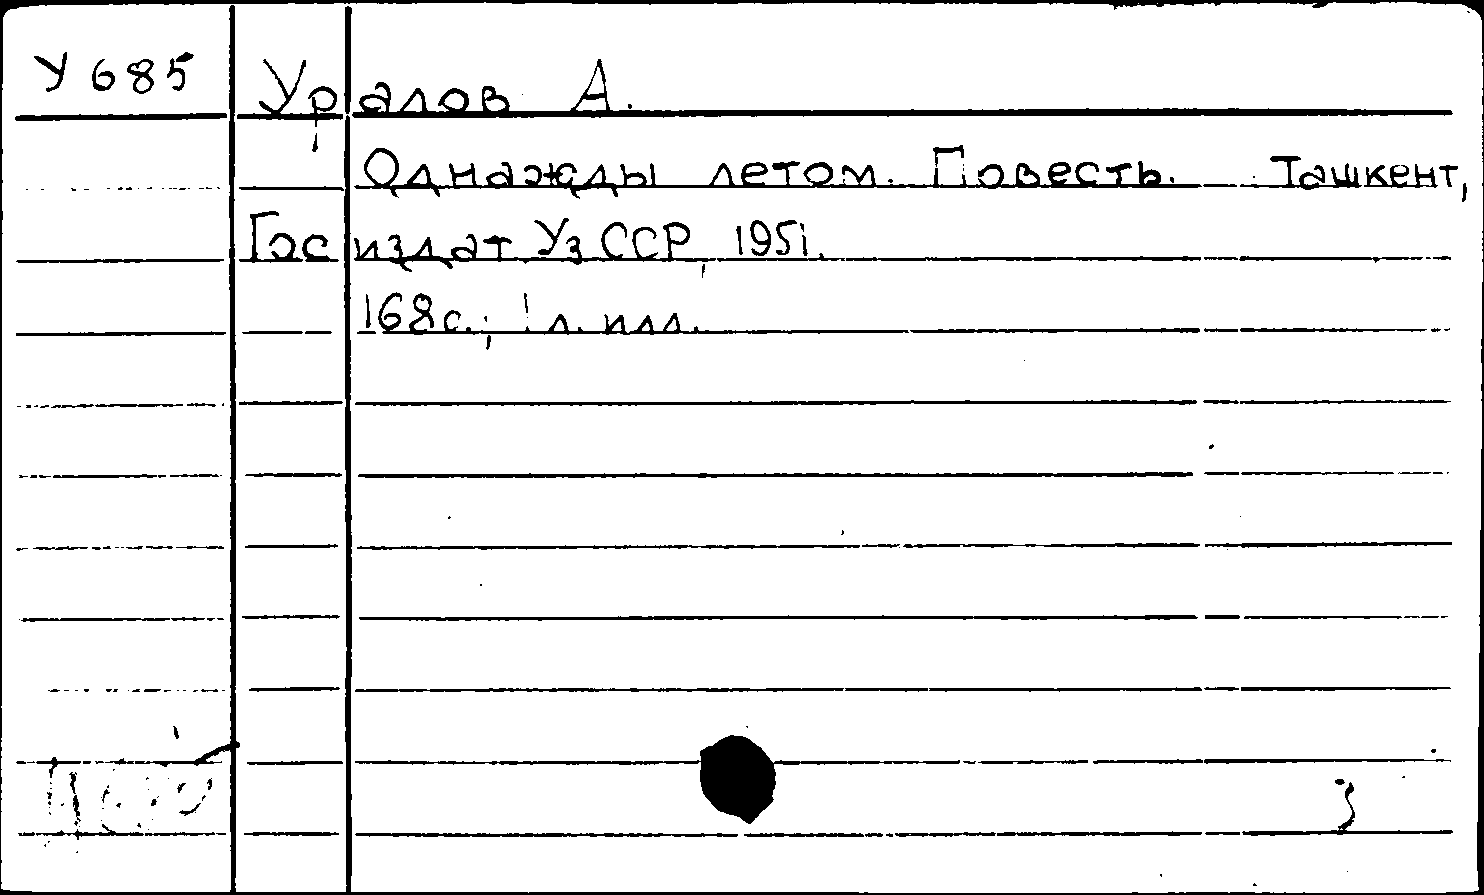 У 685
Уралов А.
Однажды летом. Повесть. Ташкент,
Госиздат УзССР, 1951.
168с.; 1 л. илл.
3